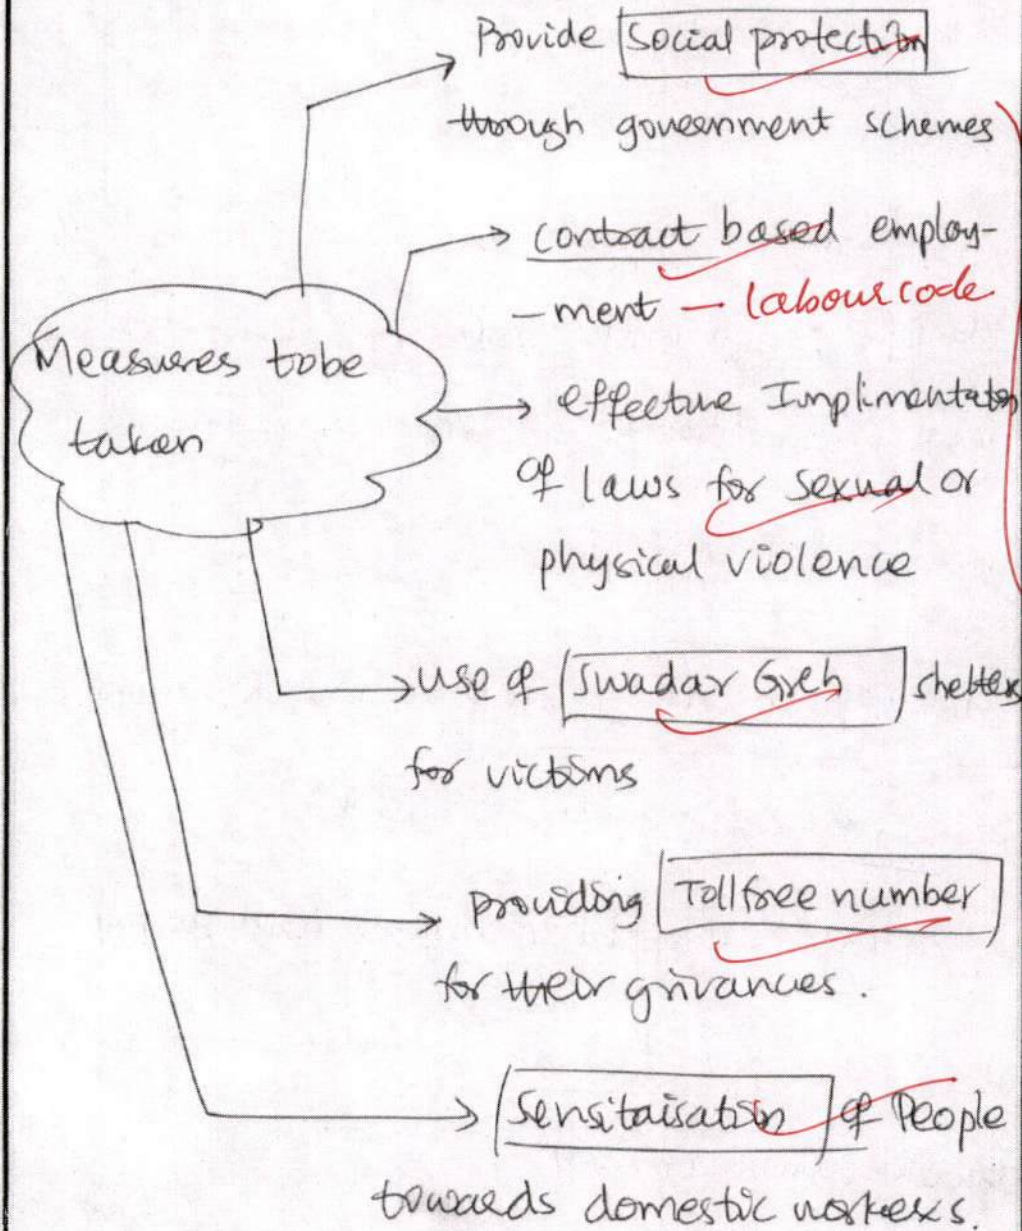 Provide Social protection
through government schemes
contract based employ-
-ment - labour code
Measures tobe
taken
effective Implimentaton
of laws for sexual or
physical violence
use of Swadar Greh shelters
for victims
providing Tollfree number
for their grivances.
Sensitaisation of People
towards domestic workers.